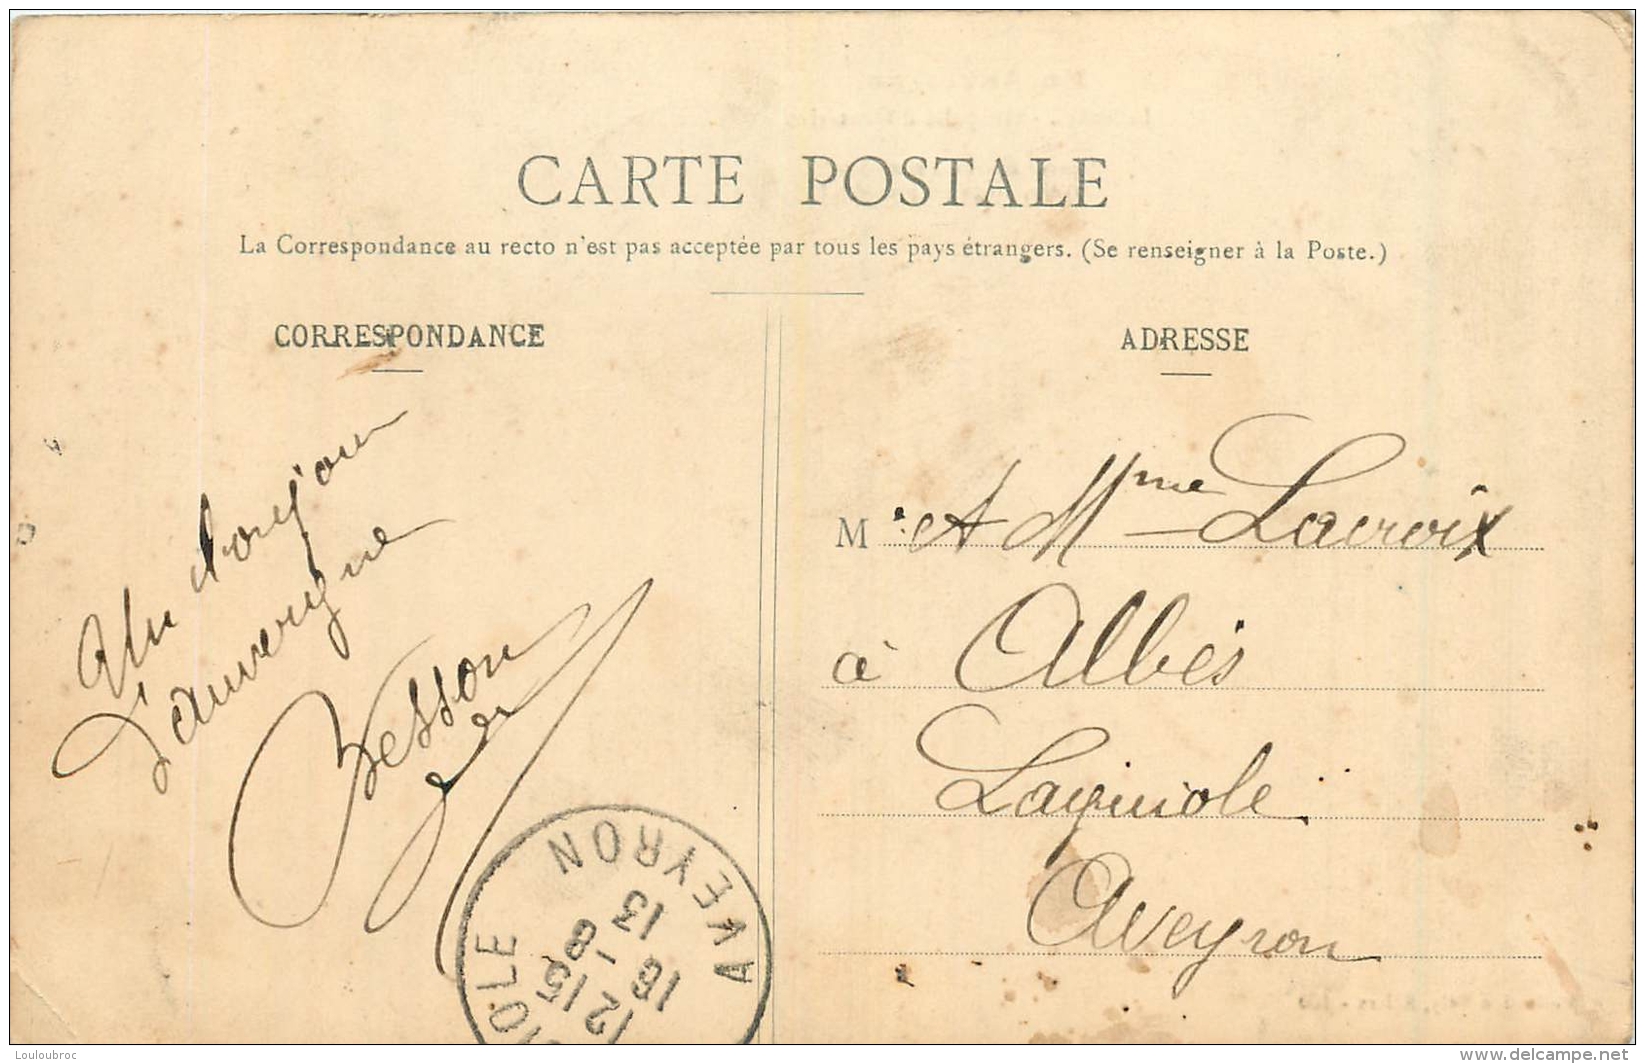 CARTE POSTALE
La Correspondance au recto n'est pas acceptée par tous les pays étrangers. (Se renseigner à la Poste.)
CORRESPONDANCE
Un bonjour
d'auvergne
Besson
ADRESSE
M A Mme Lacroix
à Albès
Laguiole
Aveyron
AVEYRON
12 15
16 - 8
13
IOLE
Louloubroc
www.delcampe.net